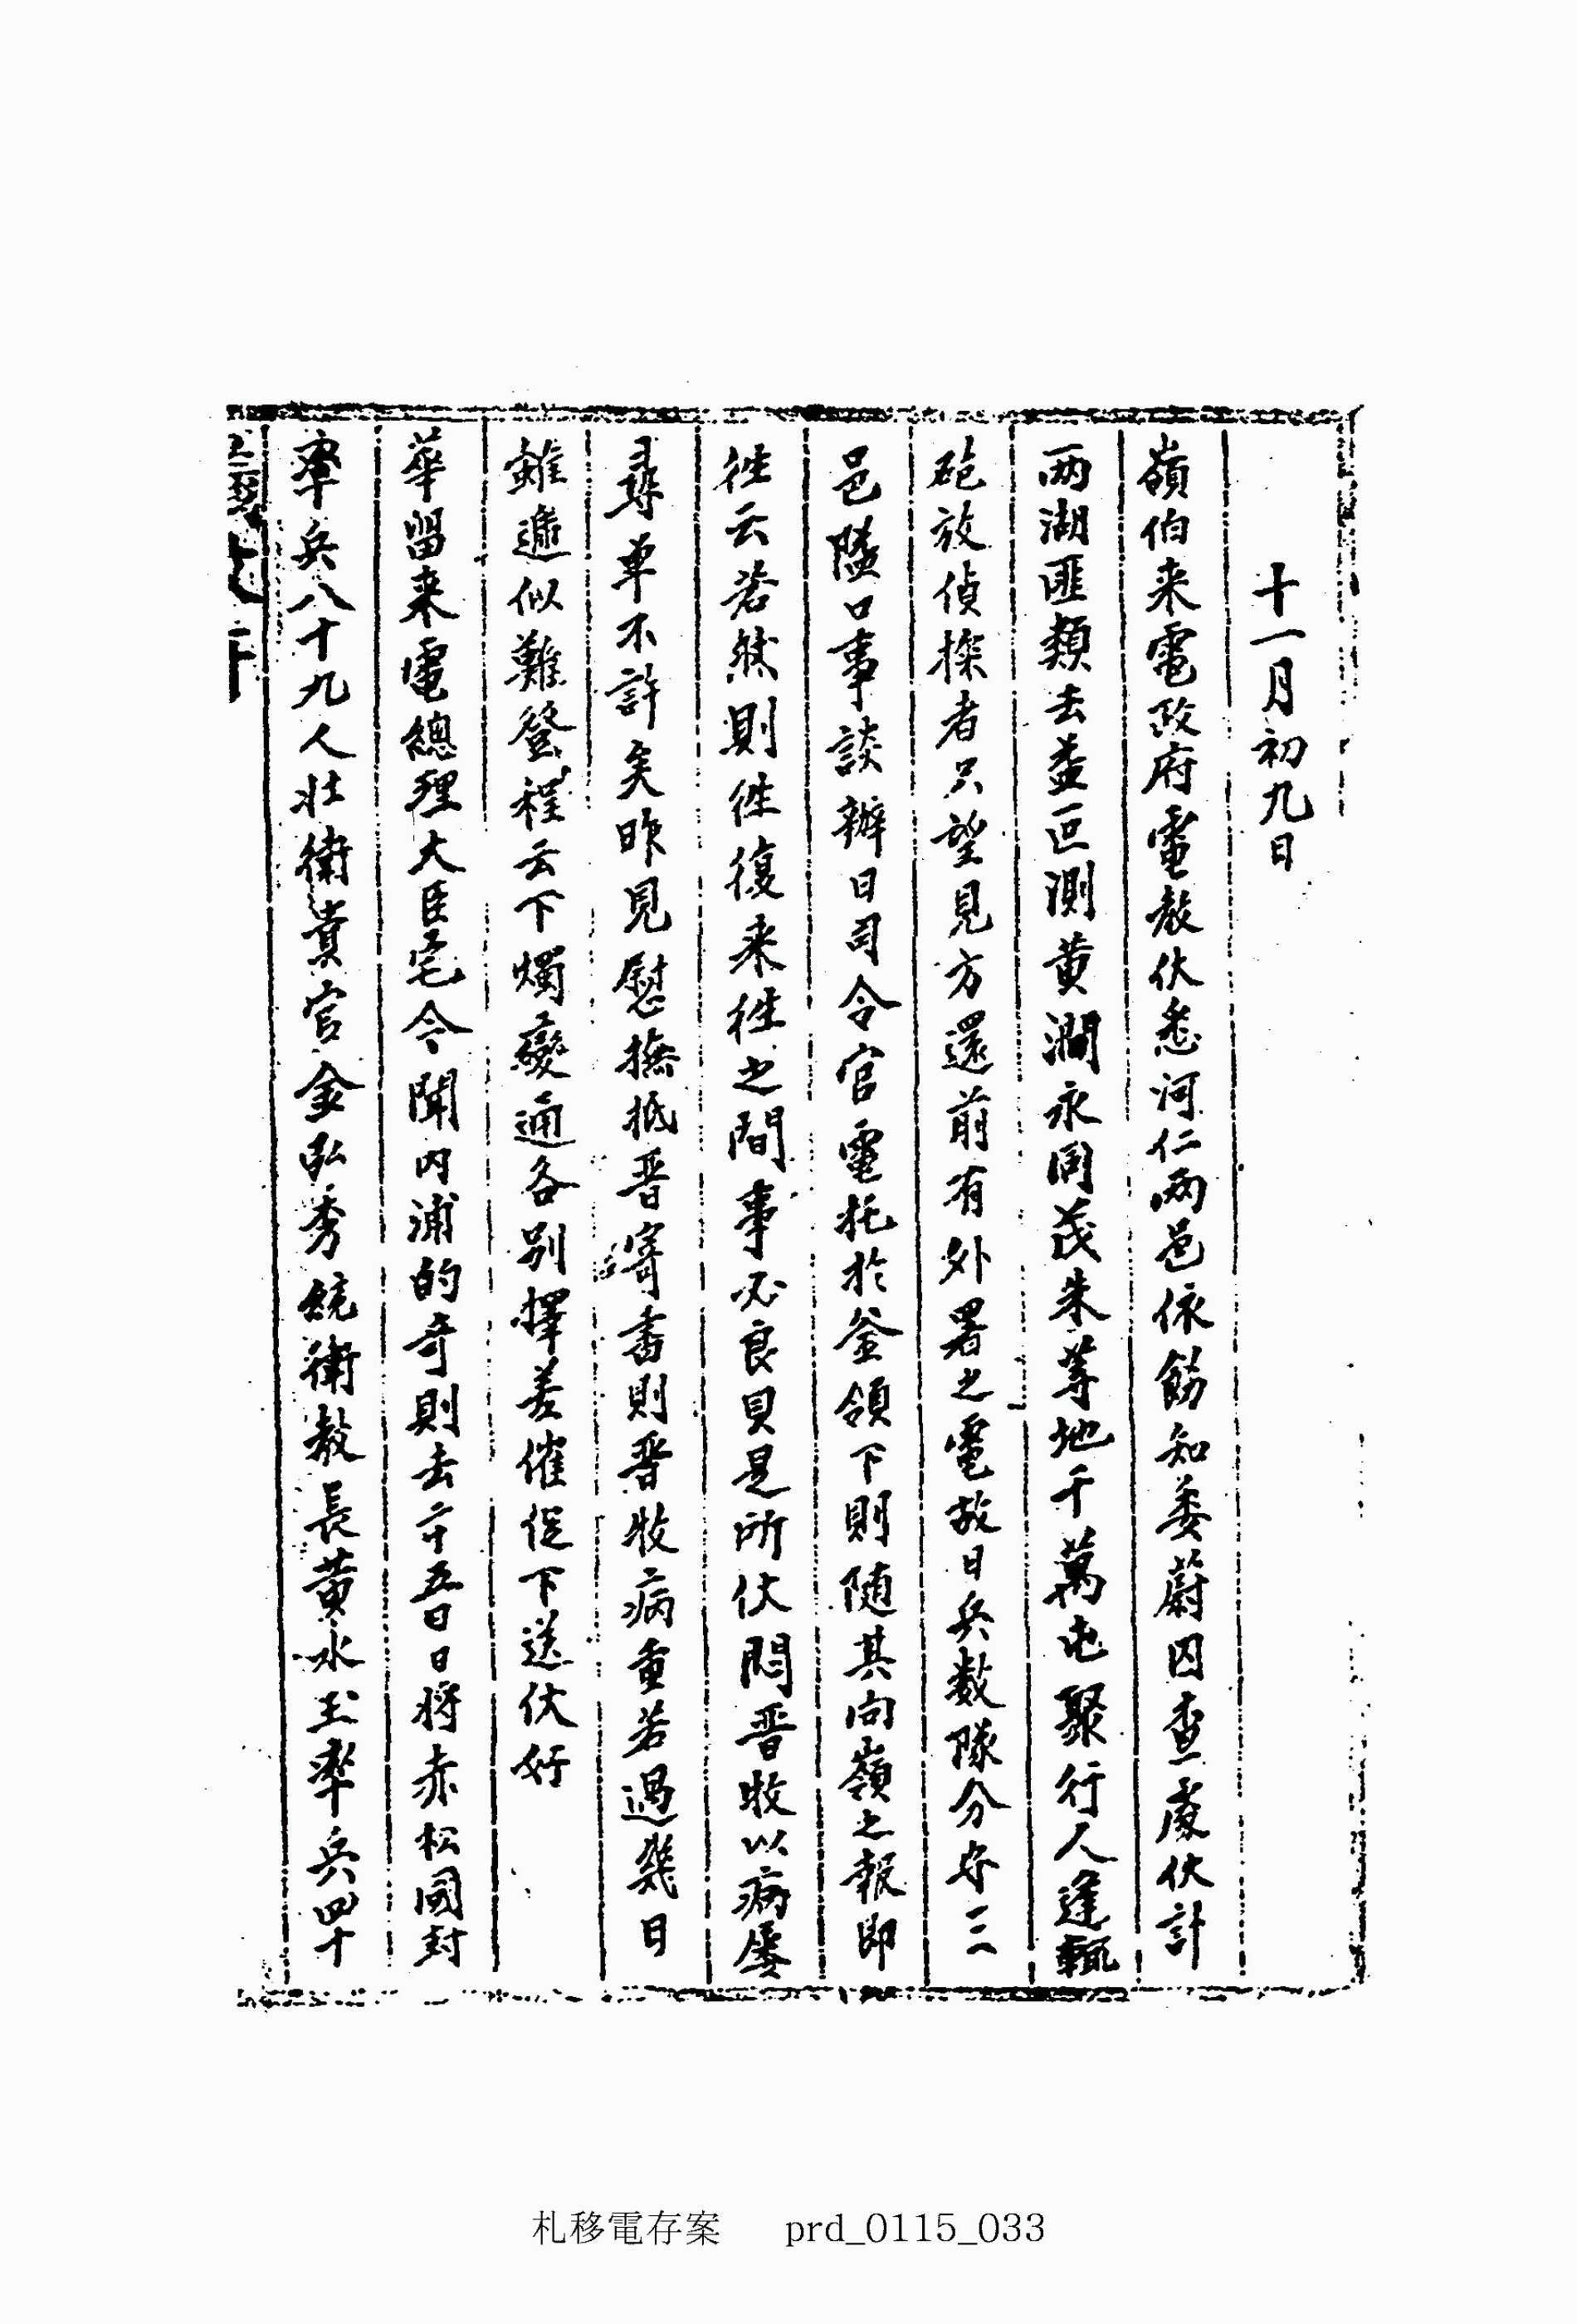 十一月初九日
嶺伯来電政府電敎伏悉河仁兩邑依飭知委蔚囚查處伏計
兩湖匪類去益叵測黄澗永同茂朱等地千萬屯聚行人逢輒
砲放偵探者只望見方還前有外署之電故日兵数隊分守三
邑隘口事談辦日司令官電托於釜領下則随其向嶺之報即
徃云若然則徃復来徃之間事必良貝是所伏悶晋牧以病屡
尋单不許矣昨見慰撫抵晋寄書則晋牧病重若過幾日
雖遞似難登程云下燭變通各别擇差催促下送伏好
華留来電總理大臣宅今聞内浦的奇則去二十五日日将赤松國封
率兵八十九人壮衛領官金弘秀統衛敎長黄水玉率兵四十
札移電存案 prd_0115_033